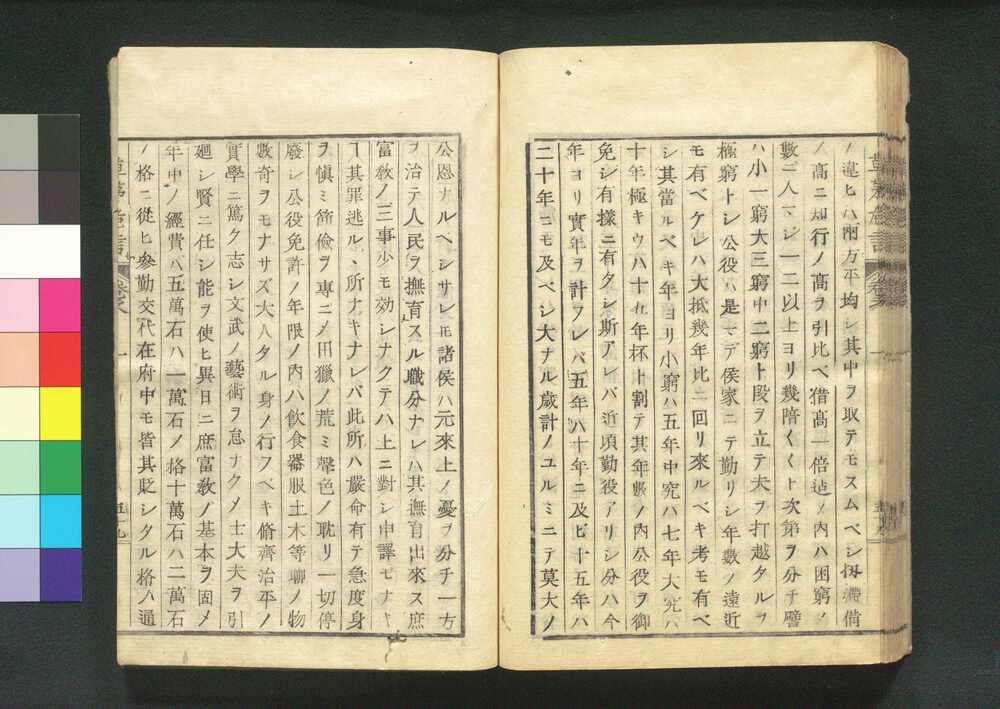 ノ違ヒハ兩方平均シ其中ヲ取テモスムベシ
ノ高ニ知行ノ高ヲ引比べ猎高一倍迠ノ內ハ困窮ノ
數ニ人ベシ一二以上ヨリ幾階くくト次第ヲ分チ譬
ハ小一窮大三窮中二窮ト段ヲ立テ夫ヲ打越タルヲ
極窮トシ公役ハ是マデ侯家ニテ勤リシ年數ノ遠近
モ有ベケレハ大抵幾年比ニ回リ來ルベキ考モ有ベ
シ其當ルベキ年ヨリ小窮ハ五年中究ハ七年大究ハ
十年極キウハ十五年杯ト割テ其年數ノ內公役ヲ御
免シ有樣ニ有タシ斯アレバ近頃勤役アリシ分ハ今
年ヨリ實年ヲ計フレバ五年ハ十年ニ及ビ十五年ハ
二十年ニモ及ベシ大ナル歳計ノユルミニテ莫大ノ
公恩ナルヘシサレモ諸侯ハ元來上ノ憂ヲ分チ一方
ヲ治テ人民ヲ撫育スル職分ナレハ其撫育出來ス庶
富敎ノ三事少モ効シナクテハ上ニ對シ申譯モナキ
ヿ其罪逃ルヽ所ナキナレバ此所ハ嚴命有テ急度身
ヲ愼ミ節儉ヲ專ニメ田獵ノ荒ミ聲色ノ耽リ一切停
廢シ公役免許ノ年限ノ內ハ飲食器服土木等聊ノ物
數奇ヲモナサズ大人タル身ノ行フベキ脩齊治平ノ
實學ニ篤ク志シ文武ノ藝術ヲ怠ナクメ士大夫ヲ引
廻シ賢ニ任シ能ヲ使ヒ異日ニ庶富敎ノ基本ヲ固メ
年中ノ經費ハ五萬石ハ一萬石ノ格十萬石ハ二萬石
ノ格ニ從ヒ參勤交代在府中モ皆其貶シタル格ノ通